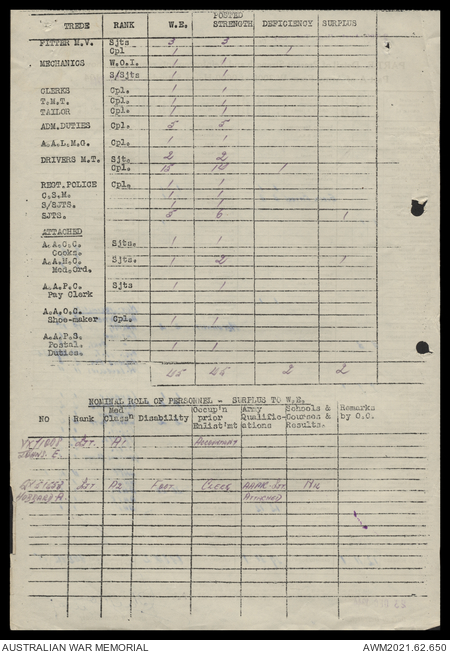 TREDE RANK W.E. POSTED STRENGTH DEFICIENCY SURPLUS
FITTER M.V. Sjts 3 3
Cpl 1 1
MECHANICS W.O.I. 1 1
S/Sjts 1 1
CLERKS Cpl. 1 1
T.M.T. Cpl. 1 1
TAILOR Cpl. 1 1
ADM.DUTIES Cpl. 5 5
A.A.L.M.O. Cpl. 1 1
DRIVERS M.T. Sjts. 2 2
Cpl. 15 14 1
REGT.POLICE Cpl. 1 1
C.S.M. 1 1
S/SJTS. 1 1
SJTS. 5 6 1
ATTACHED
A.A.C.C. Sjts. 1 1
Cooks.
A.A.M.C. Sjts. 1 2 1
Med.Ord.
A.A.P.C. Sjts 1 1
Pay Clerk
A.A.O.C.
Shoe-maker Cpl. 1 1
A.A.P.S.
Postal. 1 1
Duties.
45 45 2 2
NOMINAL ROLL OF PERSONNEL - SURPLUS TO W.E.
NO Rank Med Classn Disability Occup'n prior Enlist'mt Army Qualific-ations Schools & Courses & Results. Remarks by O.C.
SJT A1 Accountant
E.
SJT Feet Clerk Nil
A. Attached
AUSTRALIAN WAR MEMORIAL AWM2021.62.650